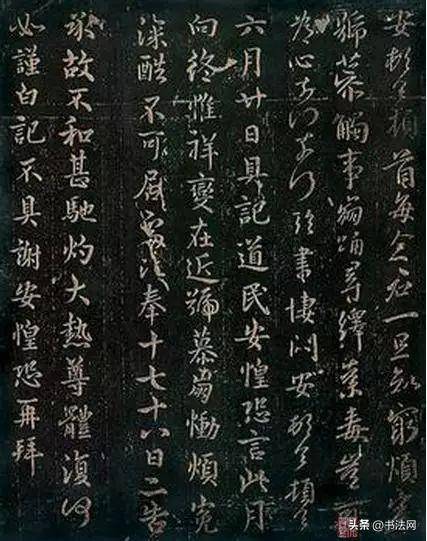 安頓首頓首每念君一旦知窮煩冤
號慕觸事崩踊尋繹荼毒豈可
為心奈何奈何臨書悽悶安頓首頓首
六月廿日具記道民安惶恐言此月
向終惟祥變在近號慕崩慟煩冤
深酷不可居奉十七十八日二告
承故不和甚馳灼大熱尊體復何
如謹白記不具謝安惶恐再拜
头条 @书法网